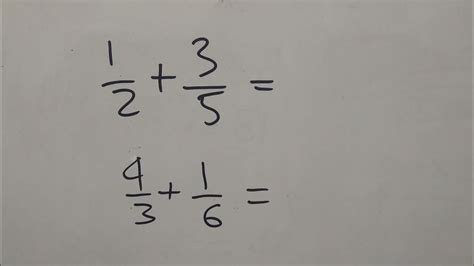 1/2 + 3/5 =
4/3 + 1/6 =